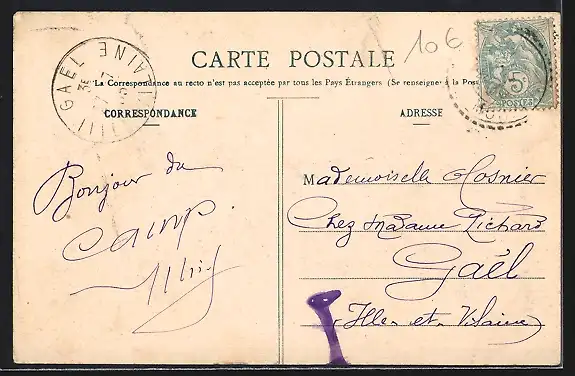 GAEL
ILLE
VILAINE
CARTE POSTALE
10€
La Correspondance au recto n'est pas acceptée par tous les Pays Étrangers (Se renseigner à la Poste
5c
POSTES
CORRESPONDANCE
ADRESSE
Bonjour du
camp.
Mademoiselle Hosnier
Chez Madame Richard
Gaël
Ille-et-Vilaine